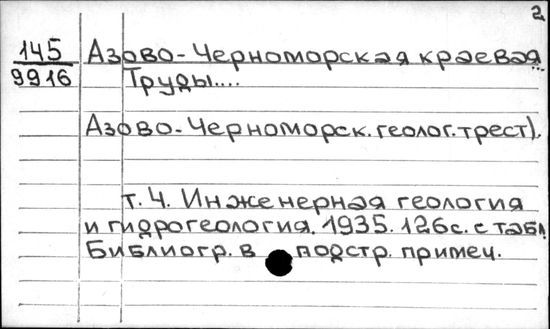 2
145
9916
Азово-Черноморская краевая...
Труды....
Азово-Черноморск.геолог.трест).
т. 4. Инженерная геология
и гидрогеология. 1935. 126с. с табл.
Библиогр. в подстр. примеч.